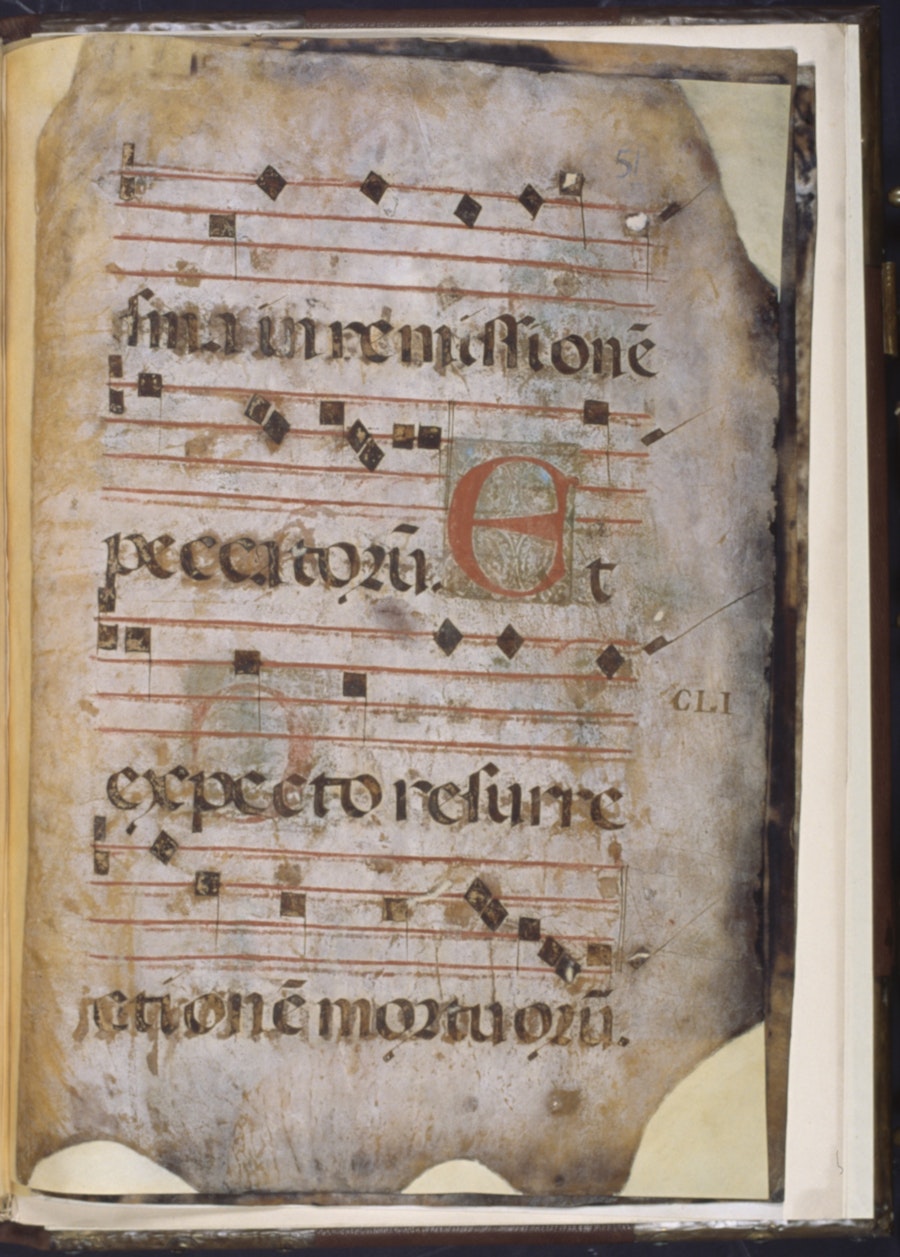 51
sma in remissionē
peccatorū. Et
CLI
expecto resurre
ctionē mortuorū.